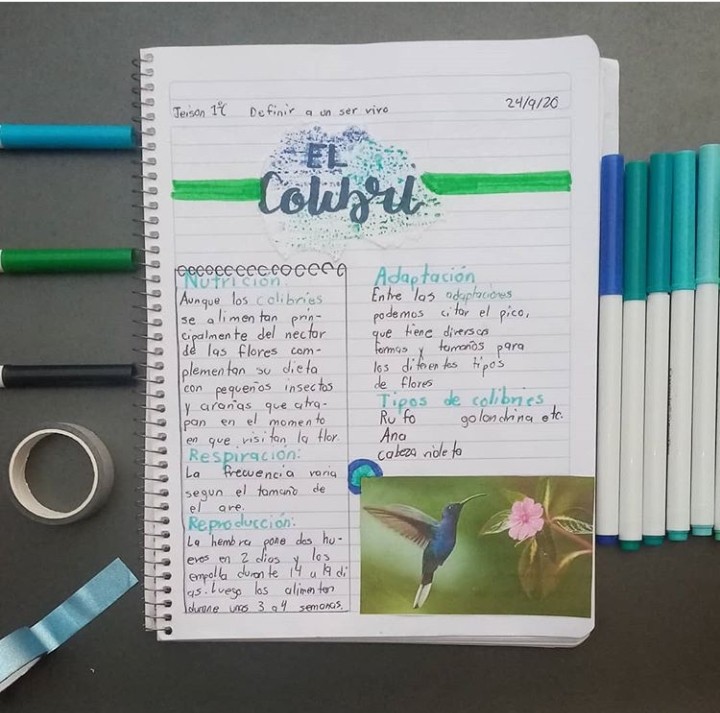 Jeison 1°C Definir a un ser vivo 24/9/20
EL
Colibrí
Nutrición:
Aunque los colibries
se alimentan prin-
cipalmente del nectar
de las flores com-
plementan su dieta
con pequeños insectos
y arañas que atra-
pan en el momento
en que visitan la flor
Respiración:
La frecuencia varia
segun el tamaño de
el ave.
Reproducción:
La hembra pone dos hu-
evos en 2 dias y los
empolla durante 14 a 19 di
as. Luego los alimentan
durante unas 3 a 4 semanas.
Adaptación
Entre las adaptaciones
podemos citar el pico,
que tiene diversas
formas y tamaños para
los diferentes tipos
de flores
Tipos de colibries
Rufo golondrina etc.
Ana
cabeza violeta